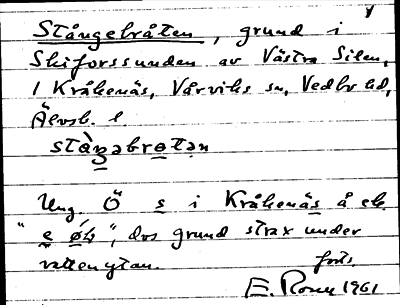 Stångebråten, grund i
Skiforssunden av Västra Silen,
1 Kråkenäs, Vårviks sn, Vedbo hd,
Älvsb. l.
stàŋəbrotən
Ung. Ö s i Kråkenäs å ek.
"e øɬ", dvs grund strax under
vattenytan. forts.
E. 1961